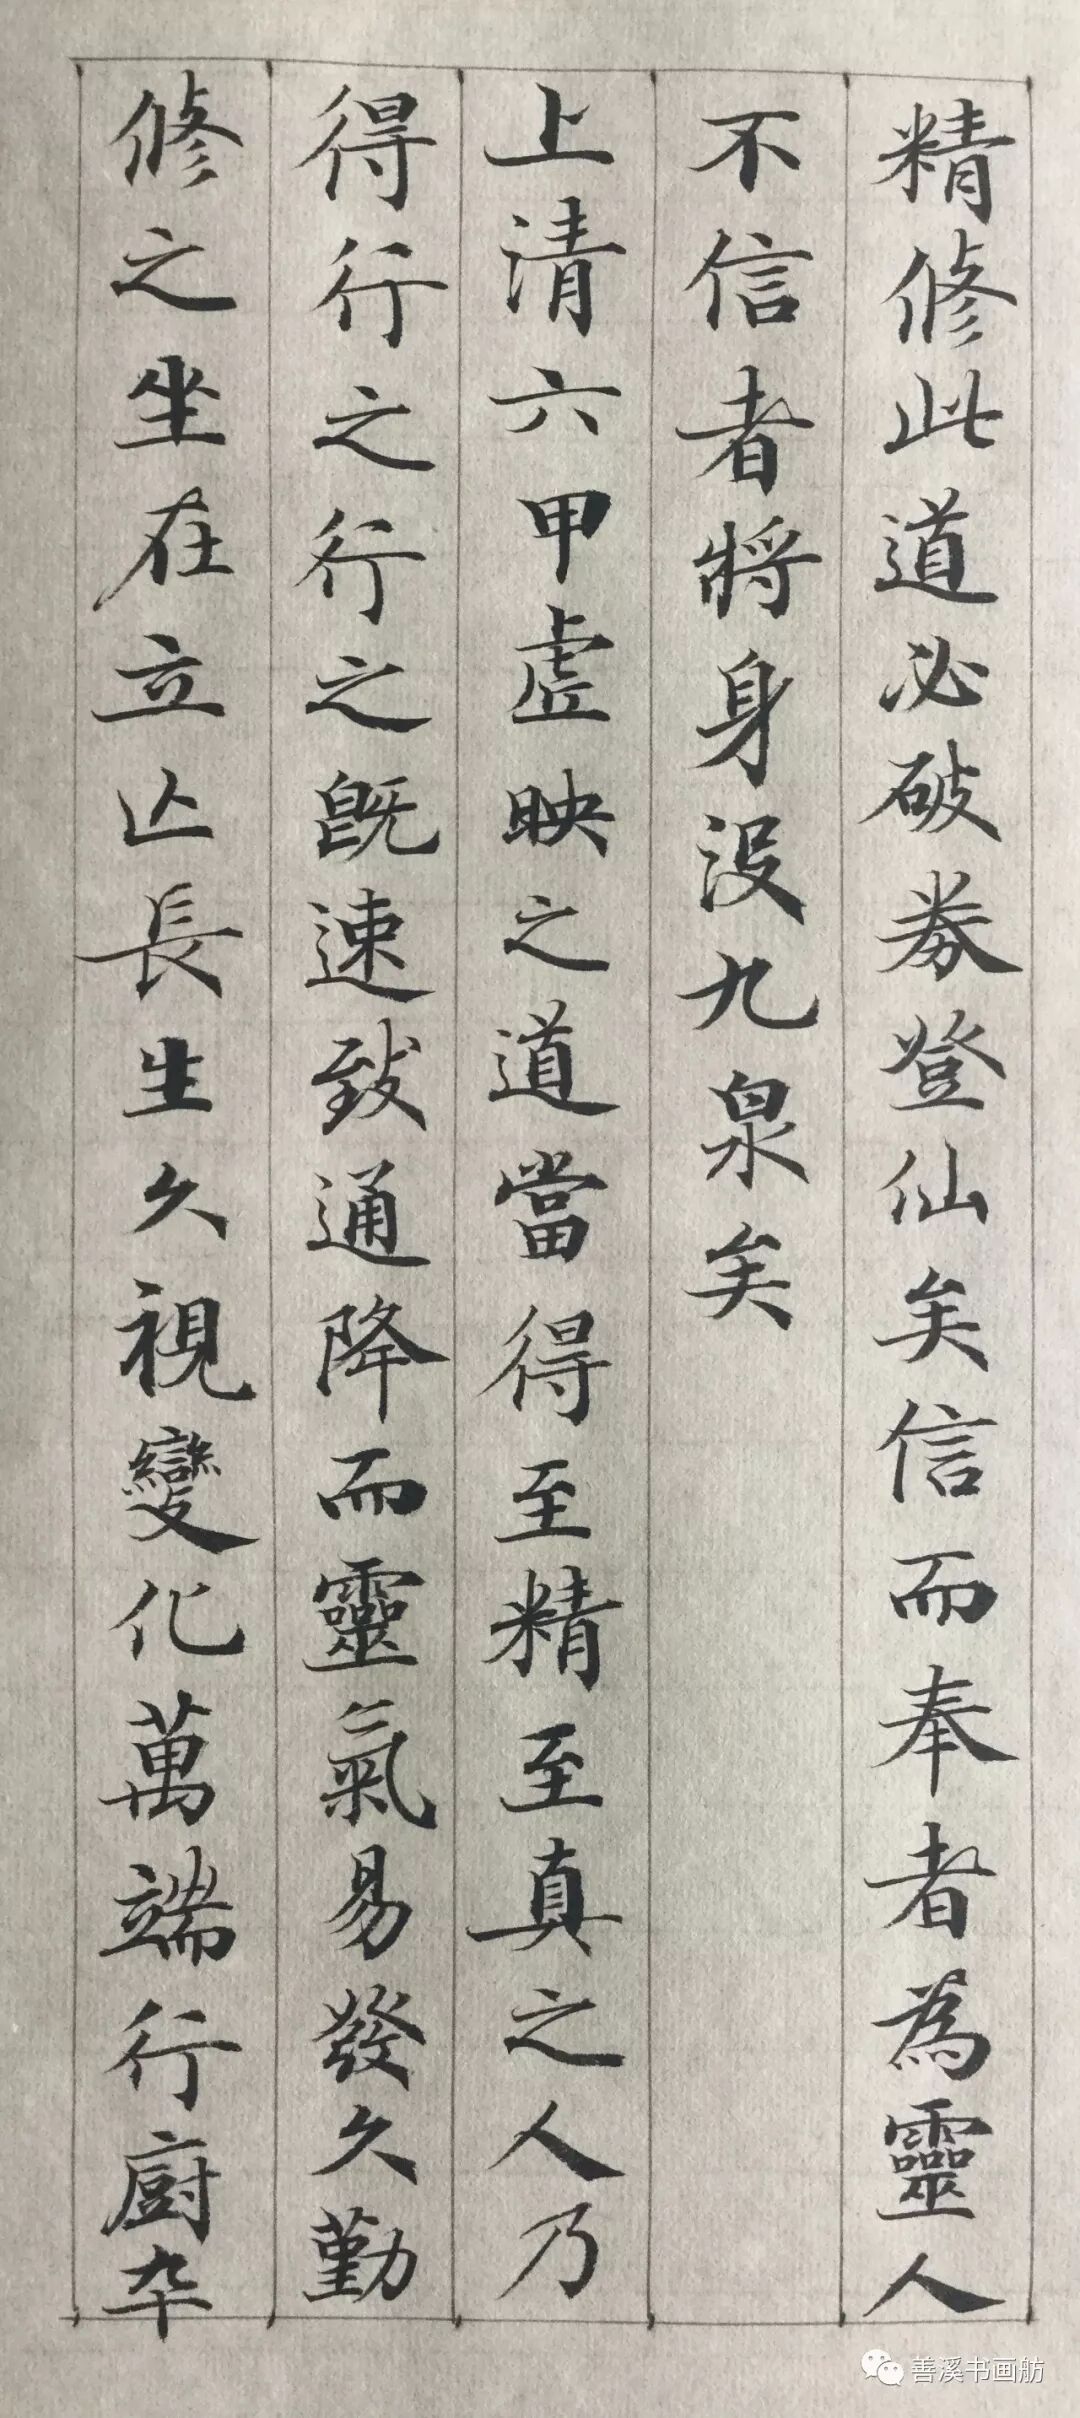 精脩此道必破券登仙矣信而奉者為靈人
不信者將身没九泉矣
上清六甲虛映之道當得至精至真之人乃
得行之行之既速致通降而靈氣易發久勤
脩之坐在立亾長生久視變化萬端行廚卒
善溪书画舫